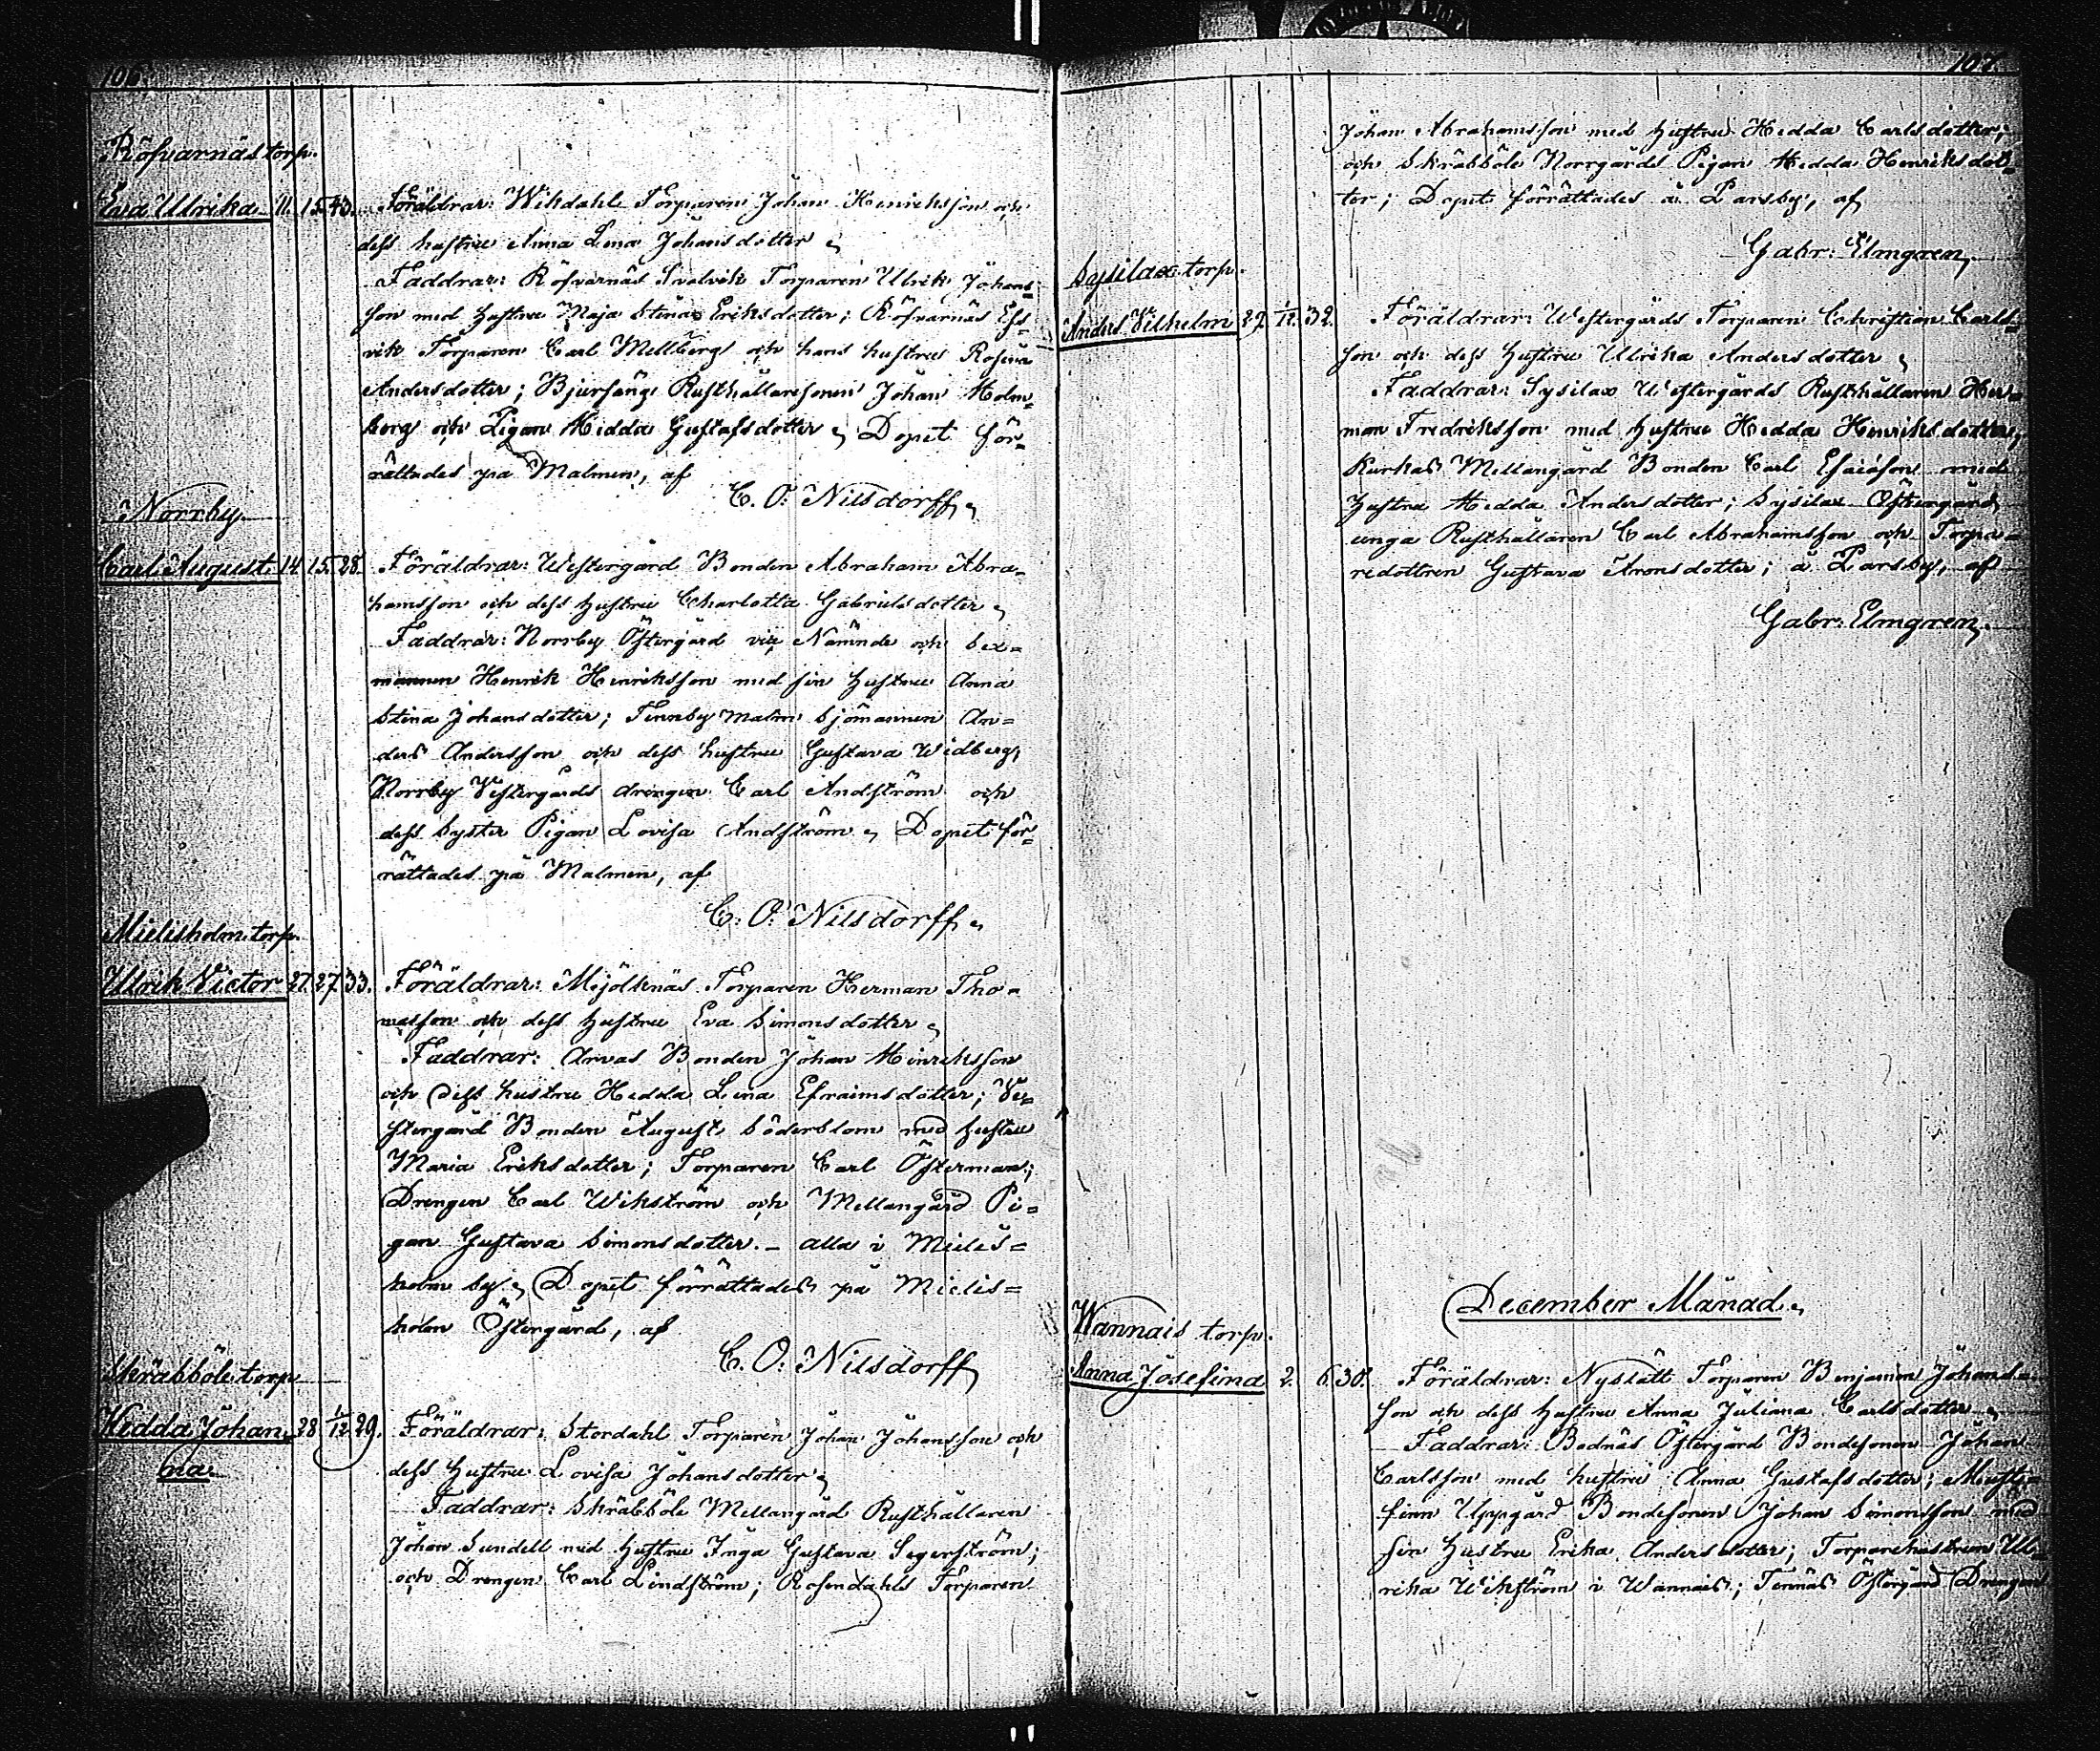 106.
Röfvarnäs torp.
Eva Ulrika 11. 15. 43. Föräldrar: Wikdahls Torparen Johan Henriksson och
dess hustru Anna Lena Johansdotter,
Faddrar: Röfvarnäs Svalvik Torparen Ulrik Johans-
son med hustru Maja Stina Eriksdotter; Röfvarnäs Ess-
vik Torparen Carl Mellberg och hans hustru Rosina
Andersdotter; Bjursäng Rusthållaresonen Johan Holm-
berg och Pigan Hedda Gustafsdotter, Dopet för-
rättades på Malmen, af
C. O. Nilsdorff,
Norrby
Carl August. 14. 15. 28. Föräldrar: Westergård Bonden Abraham Abra-
hamsson och dess hustru Charlotta Gabrielsdotter,
Faddrar: Norrby Östergård vice Nämnde och Sex-
mannen Henrik Henriksson med sin hustru Anna
Stina Johansdotter; Finnby Malm Sjömannen An=
ders Andersson och dess hustru Gustava Widberg,
Norrby Vestergårds drengen Carl Andström och
dess Syster Pigan Lovisa Andström, Dopet för-
rättades på Malmen, af
C. O. Nilsdorff,
Mielisholm torp.
Ulrik Victor 27. 27. 33. Föräldrar: Mjölknäs Torparen Herman Tho-
masson och dess hustru Eva Simonsdotter,
Faddrar: Arvas Bonden Johan Hinriksson
och dess hustru Hedda Lena Efraimsdotter; Ve-
stergård Bonden August Söderblom med hustru
Maria Eriksdotter; Torparen Carl Österman;
Drengen Carl Wikström och Mellangård Pi=
gan Gustava Simonsdotter. – alla i Mielis=
holm by, Dopet förrättades på Mielis=
holm Östergård, af
C. O. Nilsdorff
Skräbböle torp
Hedda Johan- 28 1/12 29. Föräldrar: Stordahl Torparen Johan Johansson och
na. dess hustru Lovisa Johansdotter,
Faddrar: Skräbböle Mellangård Rusthållaren
Johan Sundell med hustru Inga Gustava Segerström;
och Drengen Carl Lindström; Rosendahls Torparen
107.
Johan Abrahamsson med hustru Hedda Carlsdotter;
och Skräbböle Norrgårds Pigan Hedda Henriksdot-
ter; Dopet förrättades å Parsby, af
Gabr: Elmgren,
Sysilax torp.
Anders Vilhelm 29. 1/12. 32. Föräldrar: Westergårds Torparen Christian Carls-
son och dess hustru Ulrika Andersdotter,
Faddrar: Sysilax Westergårds Rusthållaren Her-
man Fredriksson med hustru Hedda Henriksdotter,
Kurkas Mellangård Bonden Carl Esaiason med
hustru Hedda Andersdotter; Sysilax Östergård
unga Rusthållaren Carl Abrahamsson och Torpa-
redottren Gustava Aronsdotter; å Parsby, af
Gabr: Elmgren.
December Månad,
Wannais torp.
Anna Josefina 2. 6. 30. Föräldrar: Nyslätt Torparen Benjamin Johans-
son och dess hustru Anna Juliana Carlsdotter,
Faddrar: Bodnäs Östergård Bondesonen Johan
Carlsson med hustru Anna Gustafsdotter; Must-
finn Uppgård Bondesonen Johan Simonsson med
sin hustru Erika Andersdotter; Torparehustrun Ul-
rika Wikström i Wannais; Tennäs Östergård Drengen